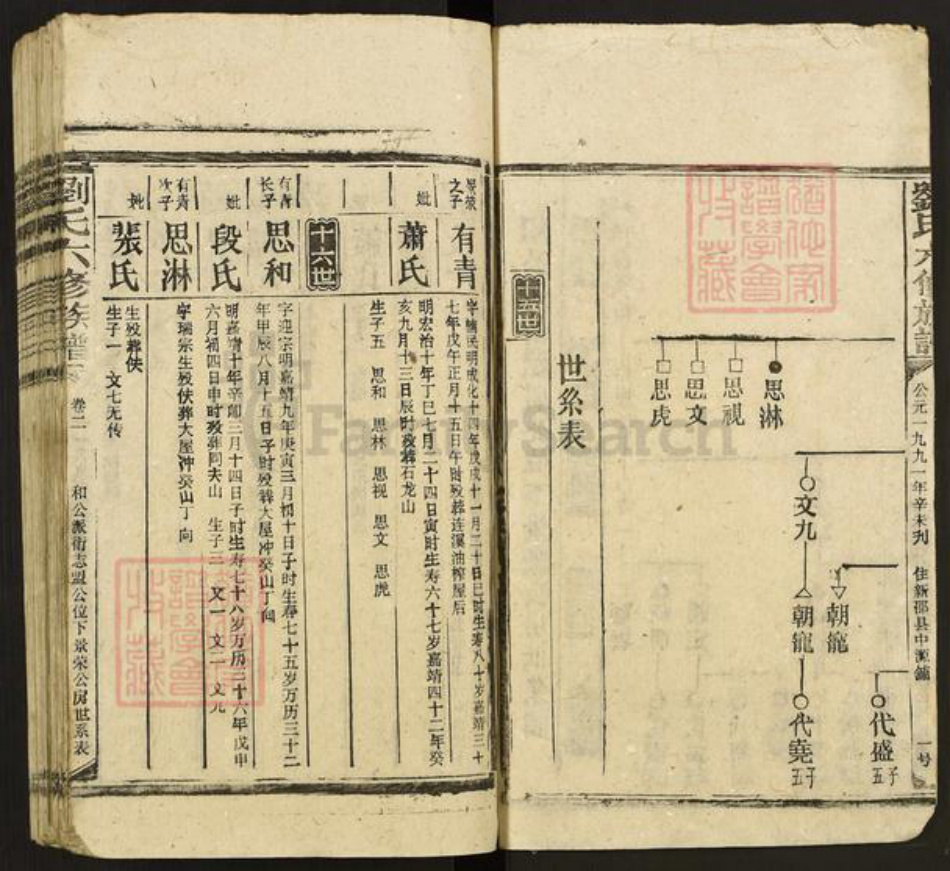 公元一九九一年辛未刊
住新邵县中源鋪
一号
代盛
五子
朝寵
文九
朝寵
代堯
五子
思淋
思視
思文
思虎
世系表
十五世
景荣之子
有青
七年戊午正月十五日午时殁葬连溪油榨屋后
妣
萧氏
明宏治十年丁巳七月二十四日寅时生寿六十七岁嘉靖四十二年癸
亥九月十三日辰时殁葬石龙山
生子五 思和 思林 思视 思文 思虎
十六世
有青长子
思和
字迎宗明嘉靖九年庚寅三月初十日子时生寿七十五岁万历三十二
年甲辰八月十五日子时殁葬大屋冲癸山丁向
妣
段氏
明嘉靖十年辛卯三月十四日子时生寿七十八岁万历三十六年戊申
六月初四日申时殁葬同夫山 生子三 文一 文二 文九
有青次子
思淋
字瑞宗生殁佚葬大屋冲癸山丁向
妣
张氏
生殁葬佚
生子一 文七无传
劉氏六修族譜
卷二
和公派衍志盟公位下景荣公房世系表
FamilySearch